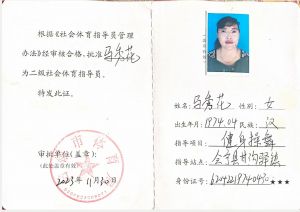 根据《社会体育指导员管理
办法》经审核合格，批准 马秀花
为二级社会体育指导员。
特发此证。
审批单位（盖章）：
（此处盖章有效）
2023年11月30日
姓名：马秀花 性别：女
出生年月：1974.04 民族：汉
指导项目：健身操舞
指导站点：会宁县甘沟驿镇
身份证号：